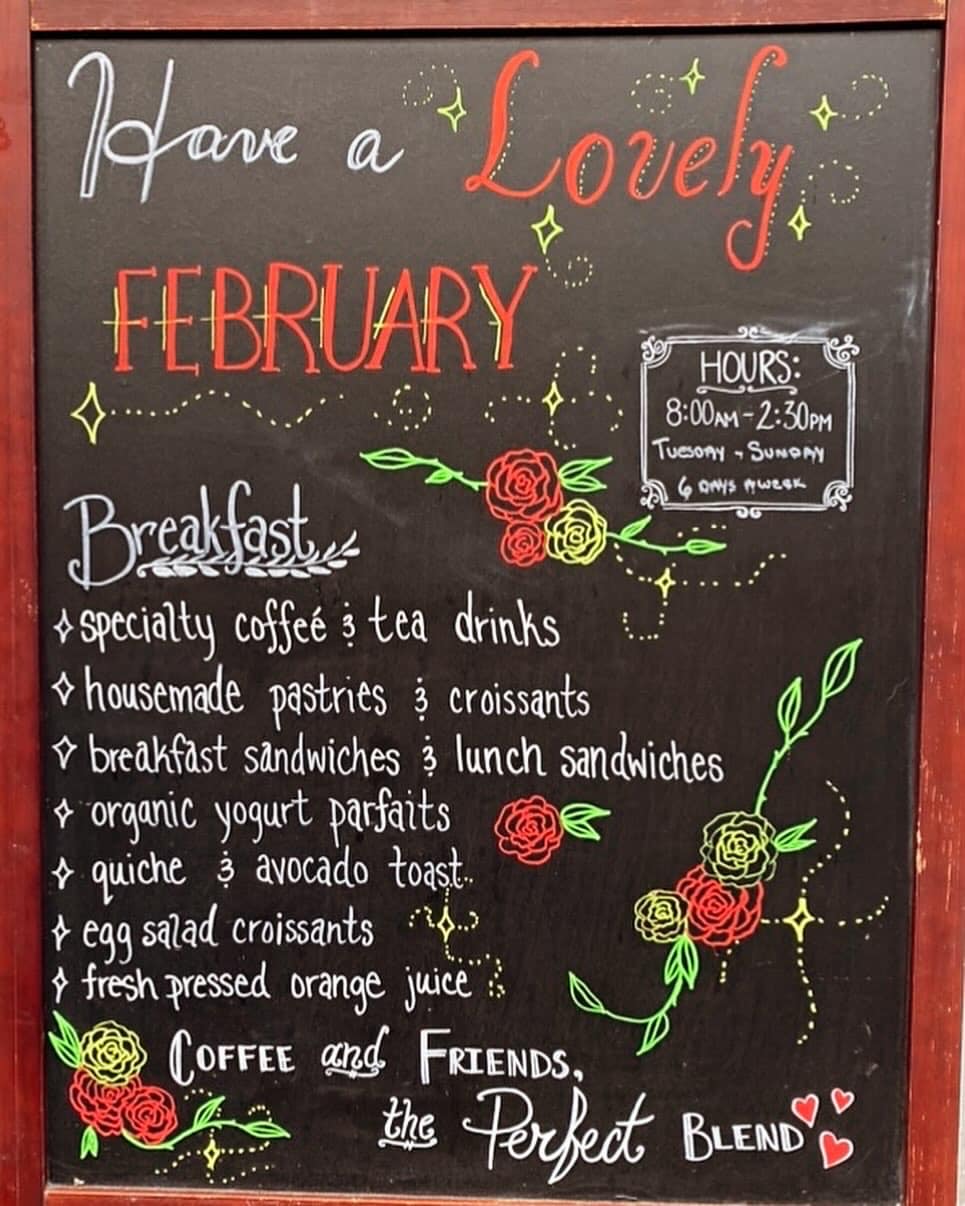 Have a Lovely
FEBRUARY
HOURS:
8:00AM-2:30PM
TUESDAY - SUNDAY
6 DAYS A WEEK
Breakfast
specialty coffeé & tea drinks
housemade pastries & croissants
breakfast sandwiches & lunch sandwiches
organic yogurt parfaits
quiche & avocado toast
egg salad croissants
fresh pressed orange juice
COFFEE and FRIENDS,
the Perfect BLEND